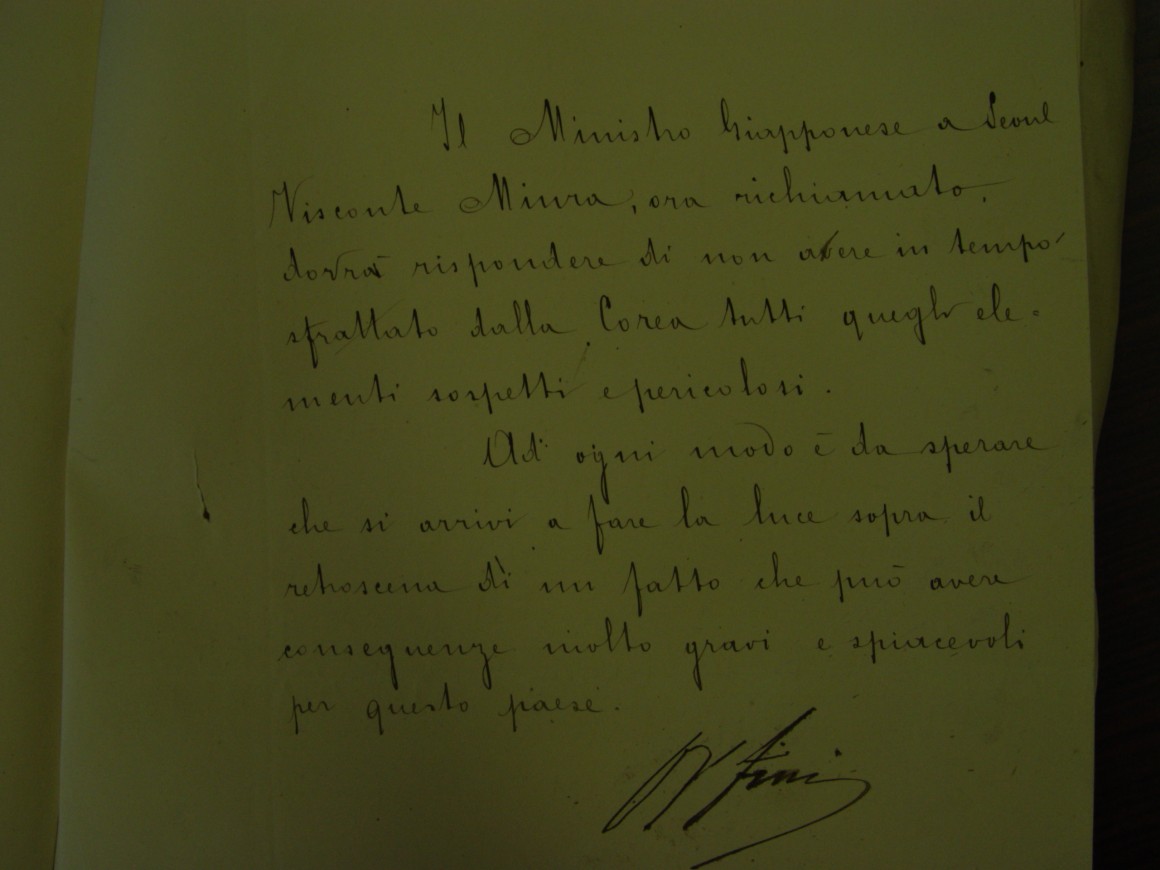 Il Ministro Giapponese a Seoul
Visconte Miura, ora richiamato,
dovrà rispondere di non avere in tempo
sfrattato dalla Corea tutti quegli ele=
menti sospetti e pericolosi.
Ad ogni modo è da sperare
che si arrivi a fare la luce sopra il
retroscena di un fatto che può avere
conseguenze molto gravi e spiacevoli
per questo paese.